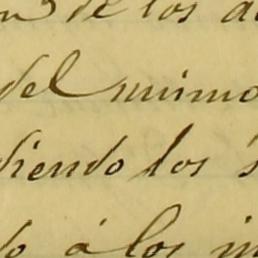 de los
del mismo
diendo los
á los